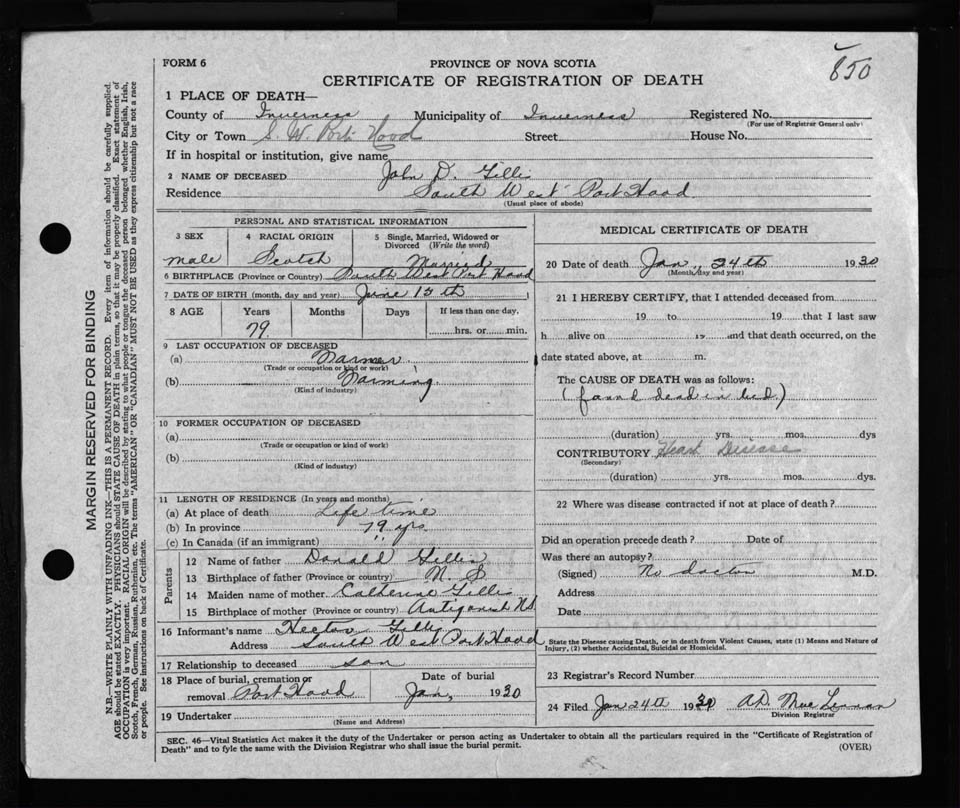 850
FORM 6
PROVINCE OF NOVA SCOTIA
CERTIFICATE OF REGISTRATION OF DEATH
1 PLACE OF DEATH—
County of Inverness Municipality of Inverness Registered No.
(For use of Registrar General only)
City or Town S. W. Port Hood Street House No.
If in hospital or institution, give name
2 NAME OF DECEASED John D. Gillis
Residence South West Port Hood
(Usual place of abode)
PERSONAL AND STATISTICAL INFORMATION
3 SEX 4 RACIAL ORIGIN 5 Single, Married, Widowed or Divorced (Write the word)
male Scotch Married
6 BIRTHPLACE (Province or Country) South West Port Hood
7 DATE OF BIRTH (month, day and year) June 15th 1
8 AGE Years Months Days If less than one day.
79 hrs. or min.
9 LAST OCCUPATION OF DECEASED
(a) Farmer
(Trade or occupation or kind of work)
(b) Farming
(Kind of industry)
10 FORMER OCCUPATION OF DECEASED
(a)
(Trade or occupation or kind of work)
(b)
(Kind of industry)
11 LENGTH OF RESIDENCE (In years and months)
(a) At place of death Life time
(b) In province 79 yrs.
(c) In Canada (if an immigrant) "
Parents
12 Name of father Donald Gillis
13 Birthplace of father (Province or country) N. S
14 Maiden name of mother Catherine Gillis
15 Birthplace of mother (Province or country) Antigonish N.S.
16 Informant's name Hector Gillis
Address South West Port Hood
17 Relationship to deceased son
18 Place of burial, cremation or removal Port Hood Date of burial Jan, 1930
19 Undertaker
(Name and Address)
MEDICAL CERTIFICATE OF DEATH
20 Date of death Jan, 24th 1930
(Month, day and year)
21 I HEREBY CERTIFY, that I attended deceased from
19 to 19 that I last saw
h alive on 19 and that death occurred, on the
date stated above, at m.
The CAUSE OF DEATH was as follows:
(found dead in bed)
(duration) yrs. mos. dys
CONTRIBUTORY Heart Disease
(Secondary)
(duration) yrs. mos. dys.
22 Where was disease contracted if not at place of death?
Did an operation precede death? Date of
Was there an autopsy?
(Signed) No doctor M.D.
Address
Date
State the Disease causing Death, or in death from Violent Causes, state (1) Means and Nature of
Injury, (2) whether Accidental, Suicidal or Homicidal.
23 Registrar's Record Number
24 Filed Jan 24th 1930 A.D. MacLennan
Division Registrar
SEC. 46—Vital Statistics Act makes it the duty of the Undertaker or person acting as Undertaker to obtain all the particulars required in the "Certificate of Registration of
Death" and to fyle the same with the Division Registrar who shall issue the burial permit. (OVER)
MARGIN RESERVED FOR BINDING
N.B.—WRITE PLAINLY WITH UNFADING INK—THIS IS A PERMANENT RECORD. Every item of information should be carefully supplied.
AGE should be stated EXACTLY. PHYSICIANS should STATE CAUSE OF DEATH in plain terms, so that it may be properly classified. Exact statement of
OCCUPATION is very important. RACIAL ORIGIN will be described by stating to what people or tongue the deceased person belonged whether English, Irish,
Scotch, French, German, Russian, Ruthenian, etc. The terms "AMERICAN" OR "CANADIAN" MUST NOT BE USED as they express citizenship but not a race
or people. See instructions on back of Certificate.